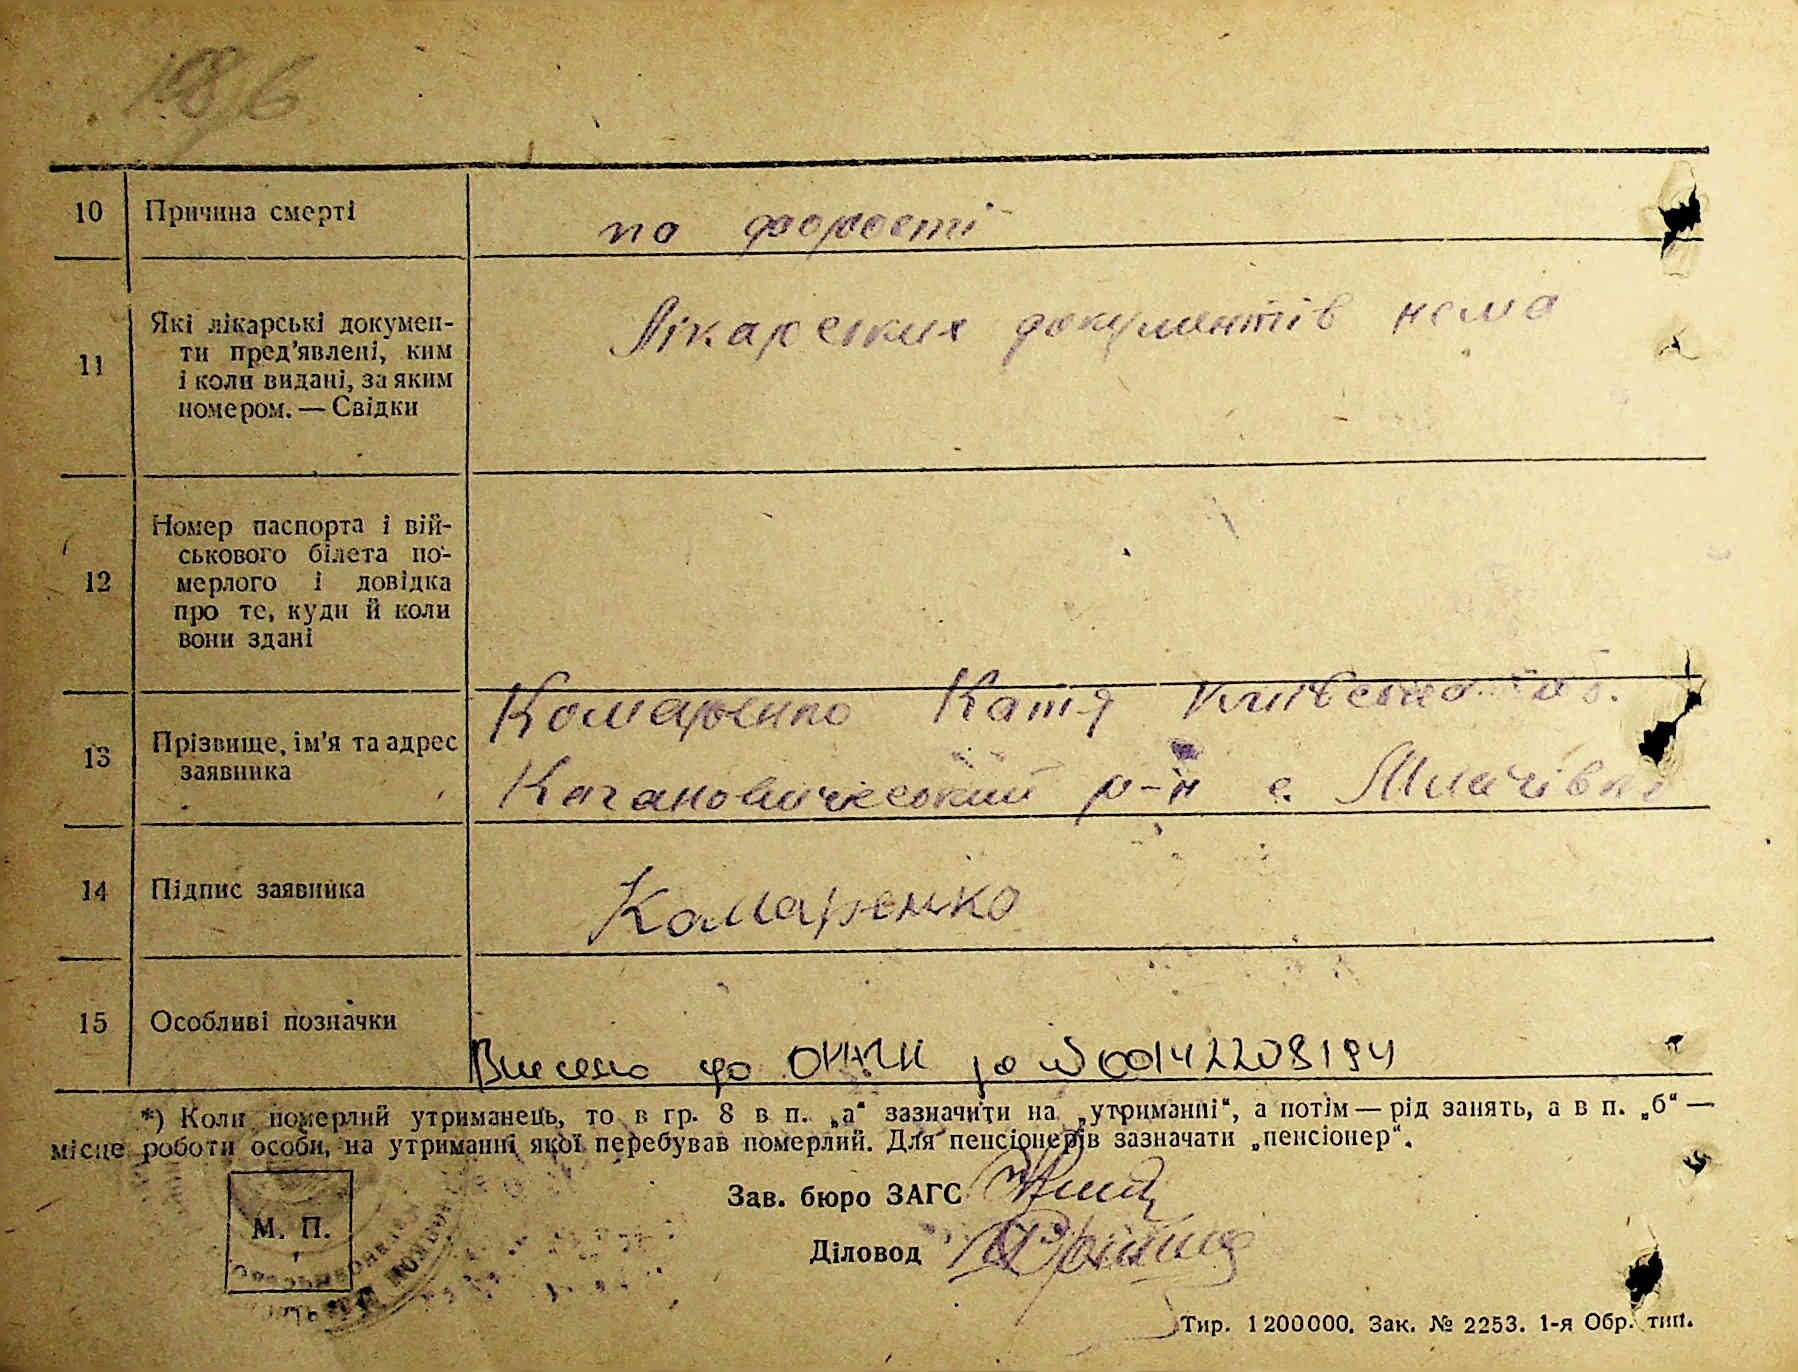 10 Причина смерті
по форості
11 Які лікарські докумен-
ти пред'явлені, ким
і коли видані, за яким
номером. — Свідки
Лікарских документів нема
12 Номер паспорта і вій-
ськового білета по-
мерлого і довідка
про те, куди й коли
вони здані
13 Прізвище, ім'я та адрес
заявника
Комаренко Катя Київська об.
Кагановичеський р-н с.
14 Підпис заявника
Комаренко
15 Особливі позначки
Внесено до за № 00142208194
*) Коли померлий утриманець, то в гр. 8 в п. „а“ зазначити на „утриманні“, а потім — рід занять, а в п. „б“ —
місце роботи особи, на утриманні якої перебував померлий. Для пенсіонерів зазначати „пенсіонер“.
Зав. бюро ЗАГС
М. П.
Діловод
Тир. 1200000. Зак. № 2253. 1-я Обр. тип.